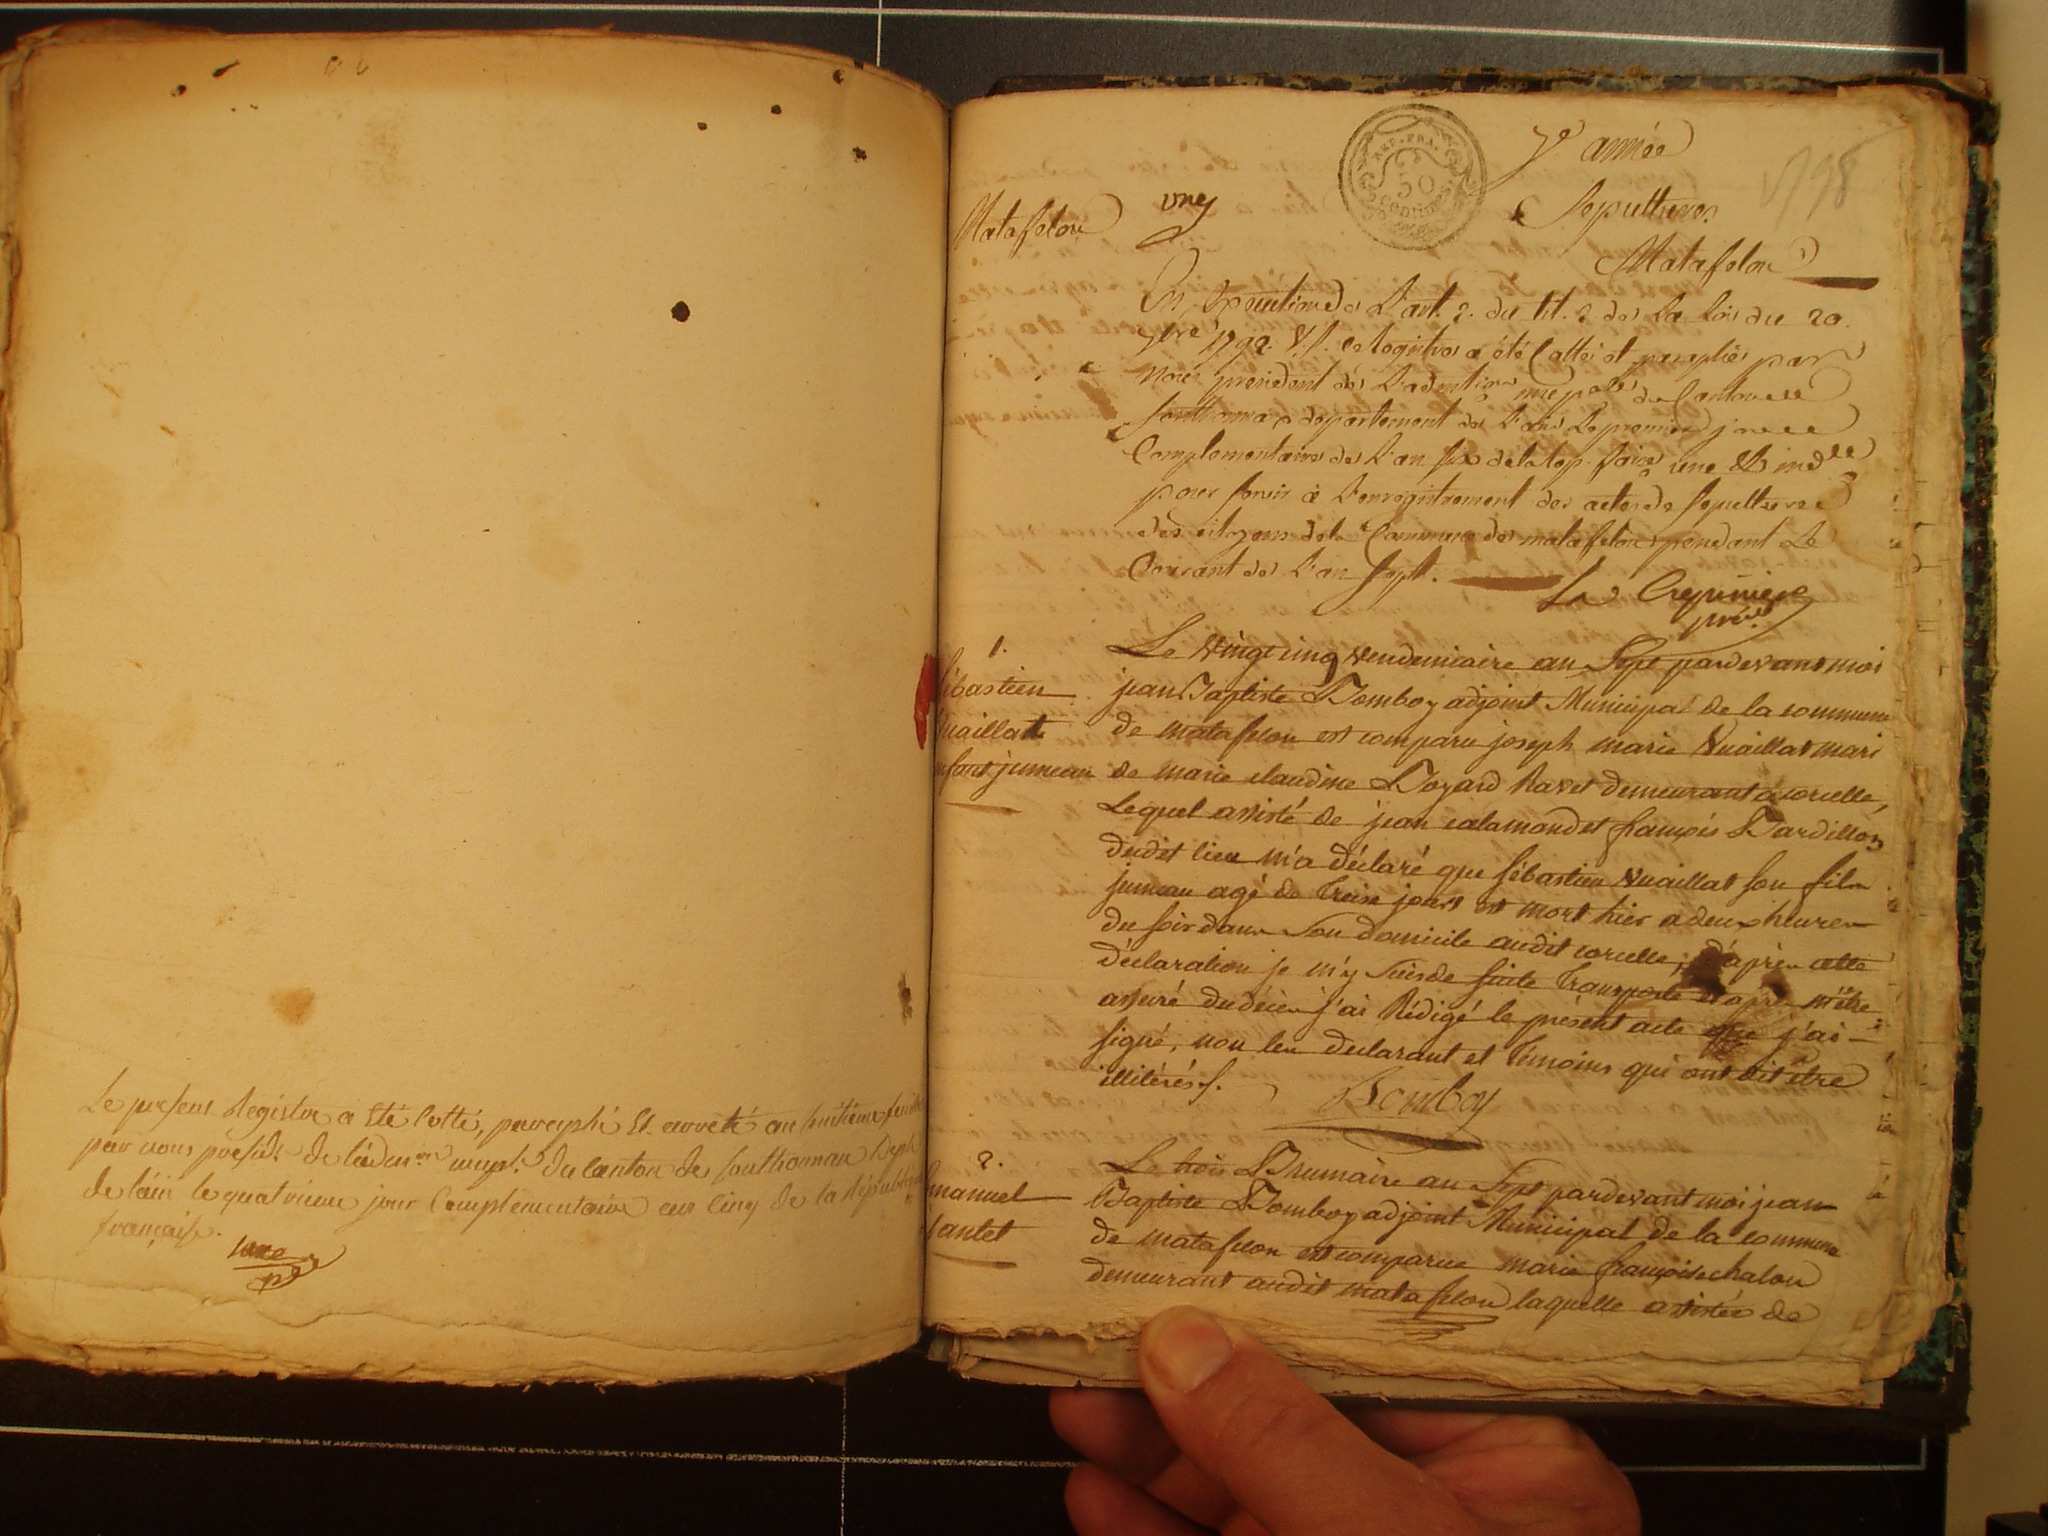 Le présent Registre a Eté Cotté, parraphé Et arreté au huitieme feuillet
par nous presidt. de l'admon. mupl. du Canton de Sonthonnax Dept.
de l'ain le quatrieme jour Complementaire an cinq de la Republique
française.
7e année
1798
REP. FRA.
50
Centimes
Sepultures
Matafelon
une
Matafelon
En Execution de L'art. 2. du tit. 2 de La Loi du 20.
7bre 1792. V.S. Ce Registre a été Cotté et paraphé par
nous president de L'admtion mcpale du Canton de
Sonthonnax departement de L'ain Le premier jour
Complementaire de L'an six de la rep. fçaise une & indlle
pour servir à L'enregistrement des actes de sepulture
des citoyens de la Commune de matafelon pendant Le
Courant de L'an Sept.
La Crepiniere
prést.
1.
Sébastien
Vuaillat
enfant jumeau
Le vingt cinq vendemiaire an Sept pardevant moi
jean Baptiste Bomboy adjoint Municipal de la commune
de matafelon est comparu joseph marie Vuaillat mari
de marie claudine Bozard Ravet demeurant a corcelle,
Lequel assisté de jean calamand et françois Bardillon
dudit lieu m'a déclaré que sébastien Vuaillat son fils
jumeau agé de treise jours est mort hier a deux heures
du soir dans son domicile audit corcelle; d'après cette
déclaration je m'y suis de suite transporté et après m'être
assuré du décès j'ai Rédigé le présent acte que j'ai
signé, non les declarant et témoins qui ont dit être
illitérés.
Bomboy
2.
Emanuel
Jantet
Le trois Brumaire an Sept pardevant moi jean
Baptiste Bomboy adjoint Municipal de la commune
de matafelon est comparue marie françoise chalon
demeurant audit matafelon laquelle assistée de